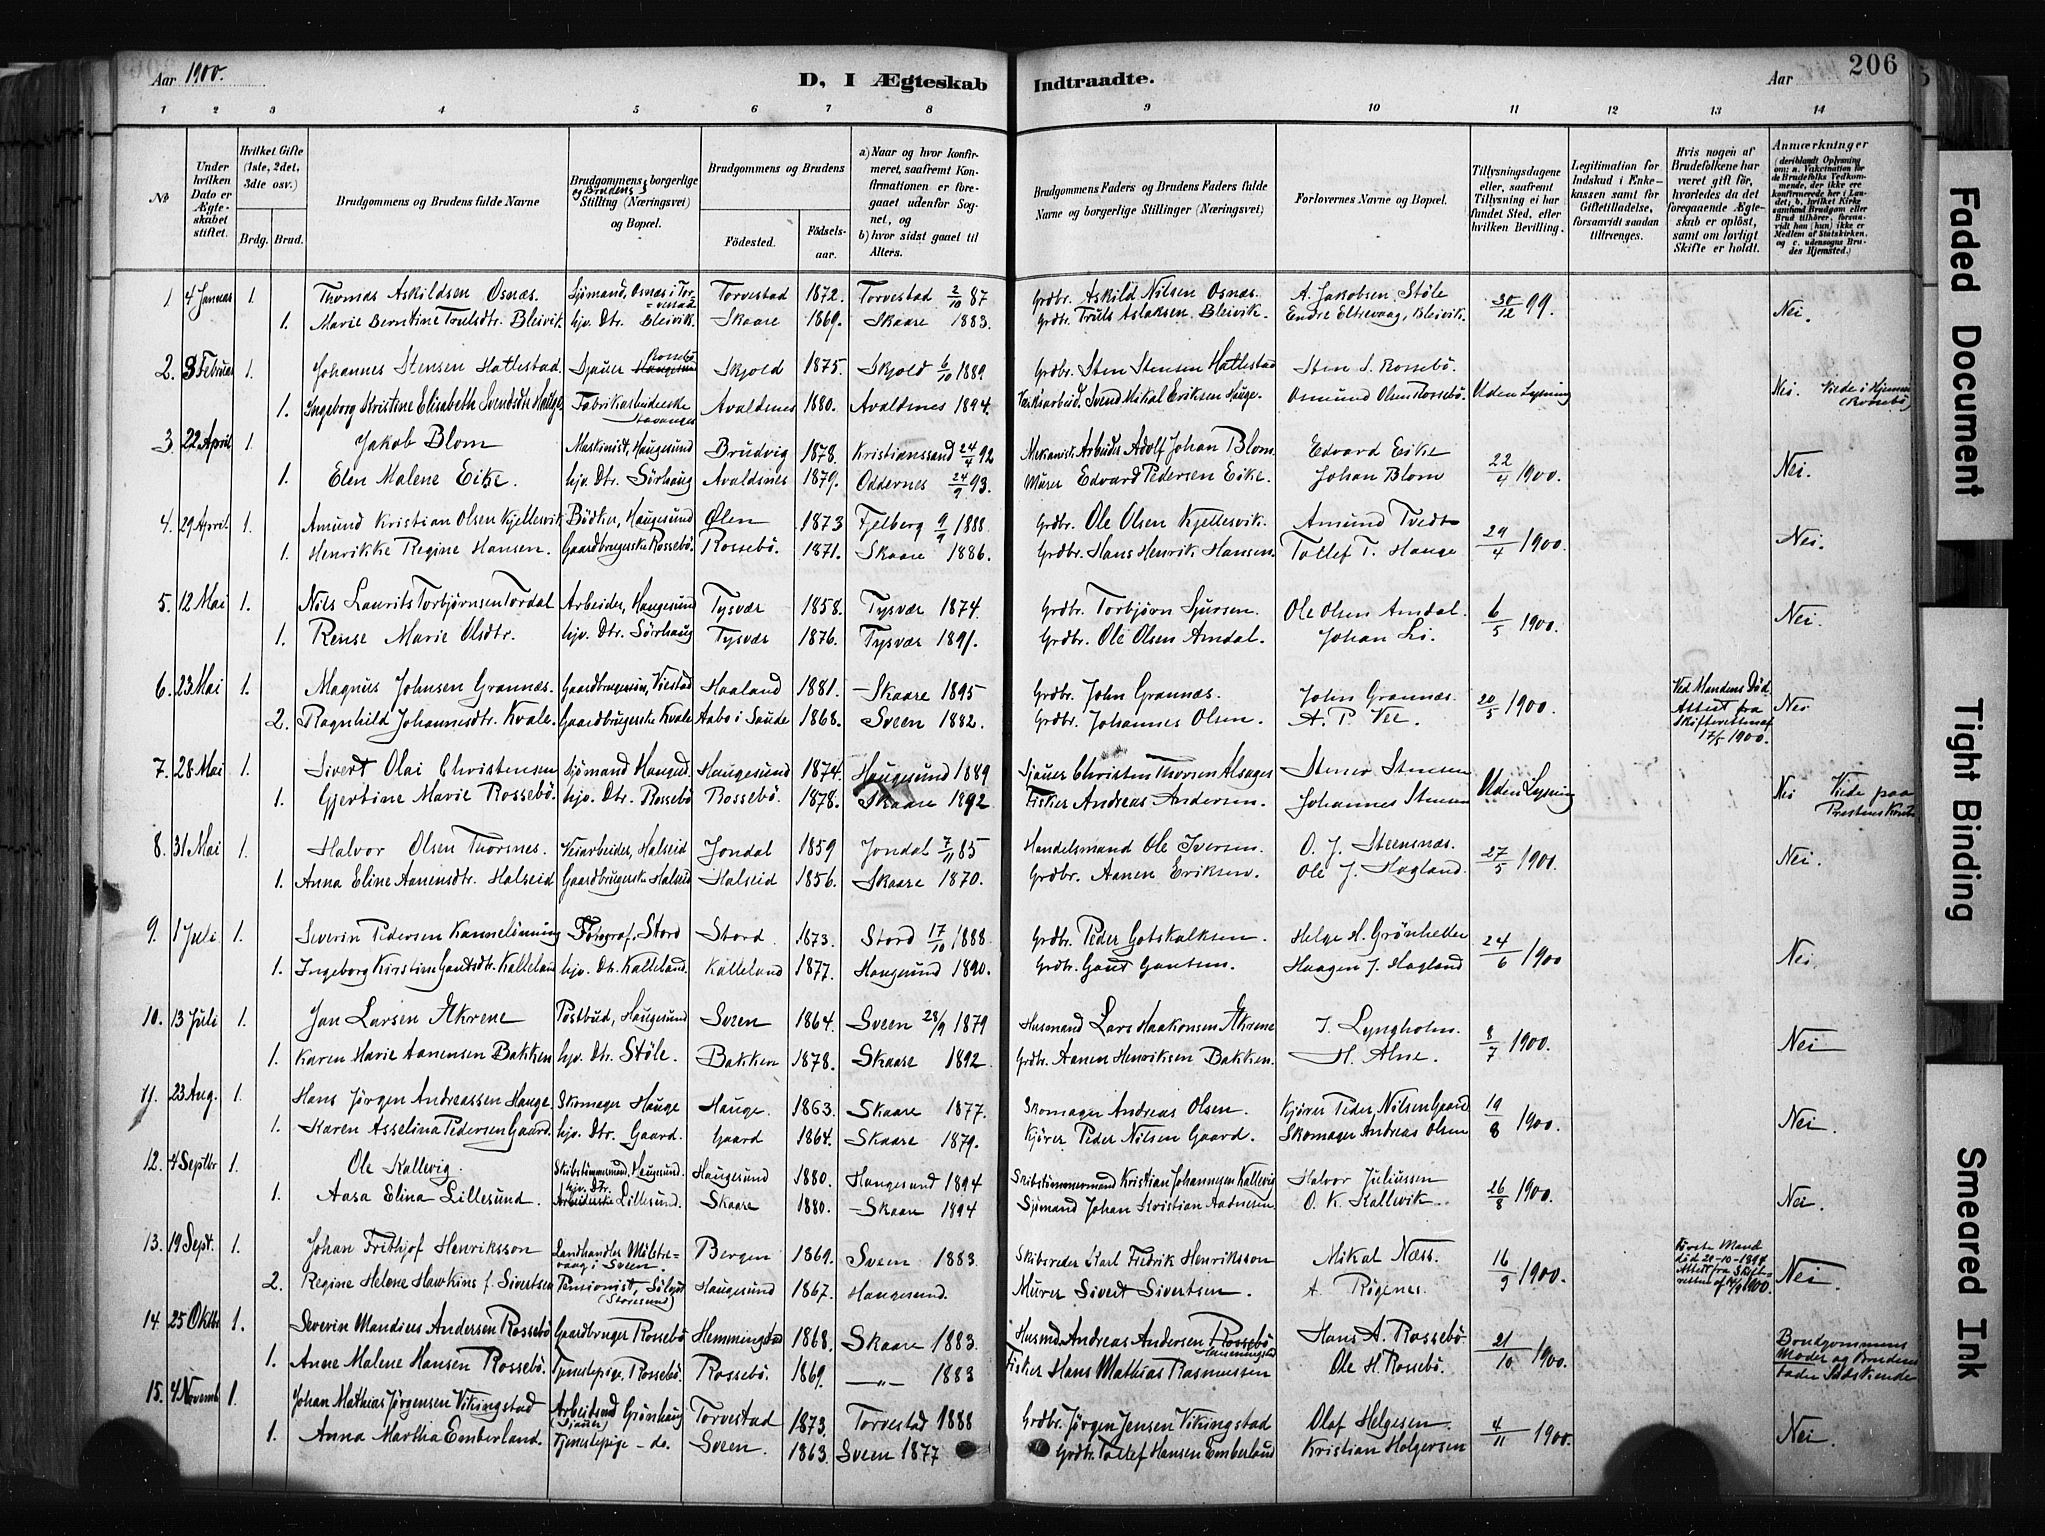 Aar 1900. D, I Ægteskab Indtraadte. Aar 206
1 2 3 4 5 6 7 8 9 10 11 12 13 14
No
Under hvilken Dato er Ægteskabet stiftet.
Hvilket Gifte (1ste, 2det, 3die osv.)
Brdg. Brud.
Brudgommens og Brudens fulde Navne
Brudgommens og Brudens borgerlige Stilling (Næringsvei) og Bopæl.
Brudgommens og Brudens
Födested. Födselsaar.
a) Naar og hvor konfirmeret, saafremt Konfirmationen er foregaaet udenfor Sognet, og
b) hvor sidst gaaet til Alters.
Brudgommens Faders og Brudens Faders fulde Navne og borgerlige Stillinger (Næringsvei)
Forlovernes Navne og Bopæl.
Tillysningsdagene eller, saafremt Tillysning ei har fundet Sted, efter hvilken Bevilling.
Legitimation for Indskud i Enkekassen samt for Giftetilladelse, forsaavidt saadan tiltrænges.
Hvis nogen af Brudefolkene har været gift för, hvorledes da det foregaaende Ægteskab er oplöst, samt om lovligt Skifte er holdt.
Anmærkninger (deriblandt Oplysning om: a. Vakcination for de Brudefolks Vedkommende, der ikke ere konfirmerede her i Landet; b. hvilket Kirkesamfund Brudgom eller Brud tilhörer, forsaavidt han (hun) ikke er Medlem af Statskirken, og c. udensogns Brudes Hjemsted.)
1 4 Januar 1. Thomas Askildsen Osnæs. Sjömand, Osnæs i Torvestad Torvestad 1872. Torvestad 2/10 87 Grdbr. Askild Nilsen Osnæs. A. Jakobsen, Støle 30/12 99. Nei.
1. Marie Berntine Trulsdtr. Bleivik. hjv. Dtr. Bleivik. Skaare 1869. Skaare 1883. Grdbr. Truls Aslaksen Bleivik. Endre Eltrevaag, Bleivik.
2. 3 Februar 1. Johannes Stensen Hattestad Sjauer Rossebö Skjold 1875. Skjold 6/10 1889 Grdbr. Sten Stensen Hattestad Sten S. Rossebö. Uden Lysning Nei. Viede i Hjemmet (Rossebö)
1. Ingeborg Kristine Elisabeth Svendsdtr Hauge Fabrikarbeiderske Stavanger Avaldsnes 1880. Avaldsnes 1894. Svend Mikal Eriksen Hauge. Osmund Olsen Rossebö.
3. 22 April 1. Jakob Blom Maskinist, Haugesund Brudvig 1878. Kristianssand 24/4 92 Mekanisk Arbeider Adolf Johan Blom Edvard Eike 22/4 1900. Nei.
1. Elen Malene Eike. hjv. Dtr. Sörhaug Avaldsnes 1879. Oddernes 24/9 93. Murer Edvard Pedersen Eike. Johan Blom
4. 29 April. 1. Amund Kristian Olsen Kjellesvik Bödker, Haugesund Ølen 1873 Fjelberg 9/9 1888 Grdbr. Ole Olsen Kjellesvik. Amund Tvedt 29/4 1900. Nei.
1. Henrikke Regine Hansen. Gaardbrugerske Rossebö. Rossebö. 1871. Skaare 1886. Grdbr. Hans Henrik Hansen. Tollef T. Hauge
5. 12 Mai 1. Nils Laurits Torbjørnsen Tordal Arbeider, Haugesund Tysvær 1858. Tysvær 1874. Grdbr. Torbjörn Sjursen. Ole Olsen Amdal. 6/5 1900. Nei.
1. Rense Marie Olsdtr. hjv. Dtr. Sörhaug Tysvær 1876. Tysvær 1891. Grdbr. Ole Olsen Amdal. Johan Li.
6. 23 Mai 1. Magnus Johnsen Grannæs. Gaardbrugersøn, Viestad Haaland 1881. Skaare 1895 Grdbr. John Grannæs. John Grannæs. 20/5 1900. Ved Mandens Död. Attest fra Skifteretten af 17/5 1900. Nei
2. Ragnhild Johannesdtr. Kvale. Gaardbrugerske Kvale Aabö i Saude 1868. Sveen 1882. Grdbr. Johannes Olsen. A. P. Vee.
7. 28 Mai 1. Sivert Olai Christensen Sjömand Haugsd. Haugesund 1874. Haugesund 1889 Sjauer Christen Thorsen Alsager Stener Stensen Uden Lysning Nei Viede paa Prestens Kontor
1. Gjertine Marie Rossebö. hjv. Dtr. Rossebö Rossebö. 1878. Skaare 1892 Fisker Andreas Andersen. Johannes Stensen
8. 31 Mai 1. Halvor Olsen Thorsnes. Veiarbeider, Halseid Jondal 1859 Jondal 7/11 85 Handelsmand Ole Iversen. O. J. Steensnæs. 27/5 1900. Nei.
1. Anna Eline Aanensdtr. Halseid Gaardbrugerske Halseid Halseid 1856. Skaare 1870. Grdbr. Aanen Eriksen. Ole J. Hagland.
9. 1 Juli 1. Severin Pedersen Kannelönning Fotograf, Stord Stord. 1873. Stord 17/10 1888 Grdbr. Peder Gotskalksen. Helge H. Grönhelle 24/6 1900 Nei.
1. Ingeborg Kirstine Gautsdtr. Kalleland hjv. Dt. Kalleland. Kalleland 1877. Haugesund 1890. Grdbr. Gaut Gautsen. Haagen J. Hagland
10. 13 Juli 1. Jan Larsen Økrene Postbud, Haugesund Sveen 1864. Sveen 28/9 1879 Husmand Lars Haakonsen Økrene J. Lyngholm. 8/7 1900. Nei
1. Karen Marie Aanensen Bakken hjv. Dt. Stöle. Bakken 1878. Skaare 1892. Grdbr. Aanen Henriksen Bakken. H. Alne.
11. 23 Aug. 1. Hans Jørgen Andreassen Hauge Skomager Hauge Hauge. 1863. Skaare 1877. Skomager Andreas Olsen. Kjörer Peder Nilsen Gaard 19/8 1900. Nei.
1. Karen Asselina Pedersen Gaard. hjv. Dtr. Gaard. Gaard 1864. Skaare 1879. Kjörer Peder Nilsen Gaard. Skomager Andreas Olsen
12. 4 Septbr 1. Ole Kallevig. Skibstimmermand, Haugesund. Haugesund 1880. Haugesund 1894 Skibstimmermand Kristian Johannesen Kallevig Halvor Juliussen 26/8 1900. Nei.
1. Aasa Elina Lillesund. hjv. Dtr. Arbeiderske Lillesund. Skaare 1880. Skaare 1894 Sjömand Johan Kristian Aadnesen. O. K. Kallevik.
13. 19 Sept. 1. Johan Frithjof Henriksson Landhandler Mölstrevaag i Sveen. Bergen 1869. Sveen 1883. Skibsreder Karl Fredrik Henriksson Mikal Næss. 16/9 1900. Förste Mand död 21-10-1899 Attest fra Skifteretten af 14/9 1900. Nei
2. Regine Helene Hawkins f. Sivertsen Pensionist, Sölyst (Storesund) Haugesund 1867. Haugesund. Murer Sivert Sivertsen. A. Rögenes.
14. 25 Oktbr 1. Severin Mandius Andersen Rossebö Gaardbruger Rossebö Hemmingstad 1868. Skaare 1883. Husmd. Andreas Andersen Rossebö Hemmingstad Hans A. Rossebö 21/10 1900. Brudgommens Moder og Brudens Fader Sødskende
1. Anne Malene Hansen Rossebö. Tjenestepige Rossebö. Rossebö. 1869. —"— 1883 Fisker Hans Mathias Rasmussen Ole H. Rossebö.
15. 4 Novemb 1. Johan Mathias Jørgensen Vikingstad Arbeidsmd Grönhaug (Sjauer) Torvestad 1873. Torvestad 1888 Grdbr. Jørgen Jensen Vikingstad Olaf Helgesen. 4/11 1900. Nei.
1. Anna Martha Emberland. Tjenestepige - do. Sveen. 1863. Sveen 1877 Grdbr. Tollef Hansen Emberland Kristian Holgersen
Faded Document
Tight Binding
Smeared Ink